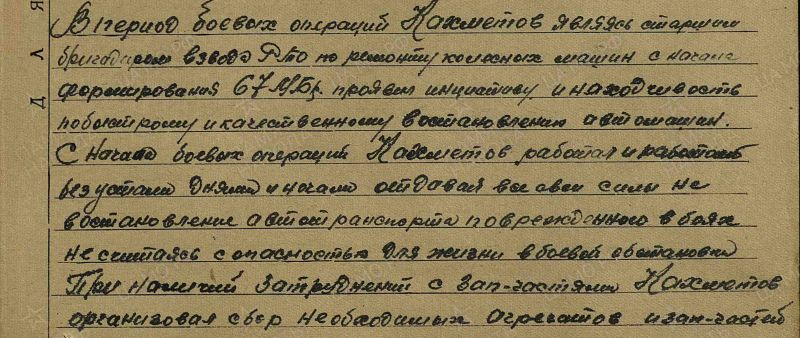 В период боевых операций Нахметов являясь старшим
бригадиром взвода РТО по ремонту колесных машин с начала
формирования 67 МБр. проявил инициативу и находчивость
побыстрому и качественному востановлению автомашин.
С начала боевых операций Нахметов работал и работает
без устали днями и ночами отдавая все свои силы не
востановление автотранспорта поврежденного в боях
не считаясь с опасностью для жизни в боевой обстановки
При наличий затруднений с зап-частями Нахметов
организовал сбор необходимых агрегатов и зап-частей
Д Л Я